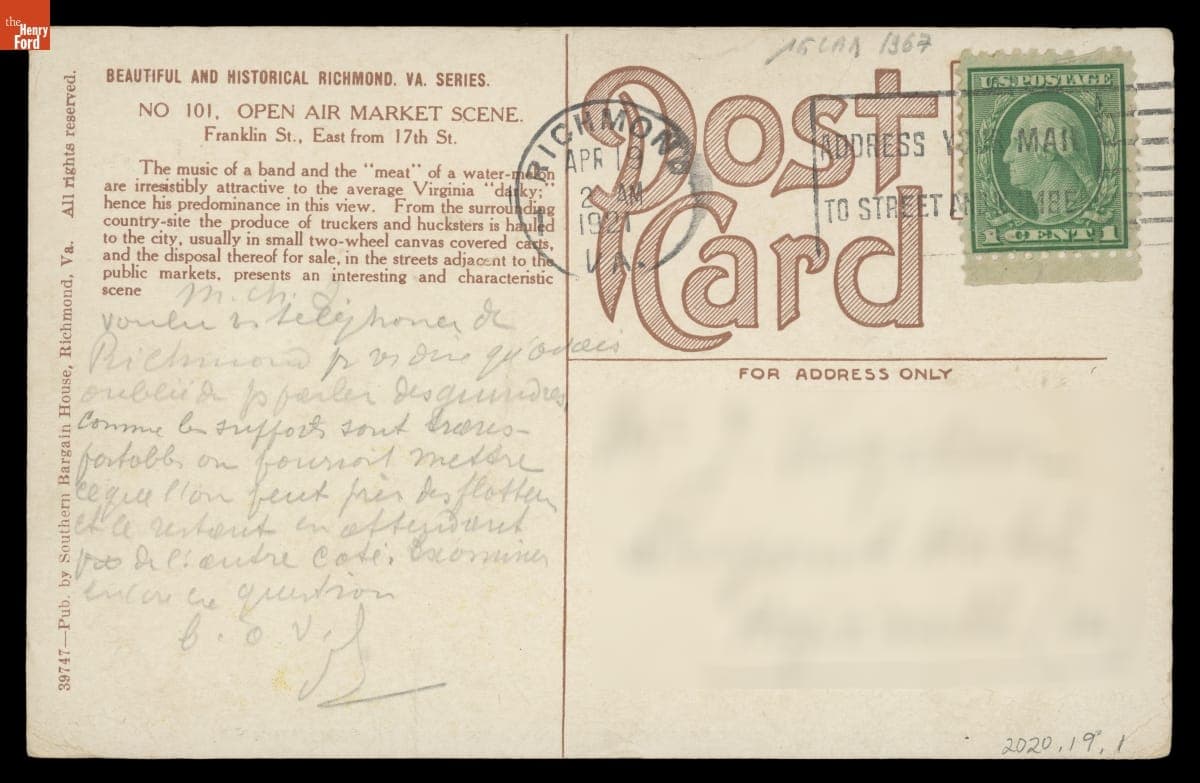 the
Henry
Ford
BEAUTIFUL AND HISTORICAL RICHMOND. VA. SERIES.
NO 101. OPEN AIR MARKET SCENE.
Franklin St., East from 17th St.
The music of a band and the "meat" of a water-melon
are irresistibly attractive to the average Virginia "darky;"
hence his predominance in this view. From the surrounding
country-site the produce of truckers and hucksters is hauled
to the city, usually in small two-wheel canvas covered carts,
and the disposal thereof for sale, in the streets adjacent to the
public markets, presents an interesting and characteristic
scene
M. ch. J.
voulu vs téléphoner de
Richmond p vs dire qu'avais
oublié de parler des
comme les supports sont trans-
portables on pourrait mettre
ce que l'on peut près des flotteurs
et le restant en attendant
de l'autre coté. Examiner
encore question
39747—Pub. by Southern Bargain House, Richmond, Va. All rights reserved.
1967
Post
Card
RICHMOND
APR 19
2 AM
1921
VA.
1
ADDRESS YOUR MAIL
TO STREET AND NUMBER
U.S. POSTAGE
1 CENT 1
FOR ADDRESS ONLY
2020.19.1